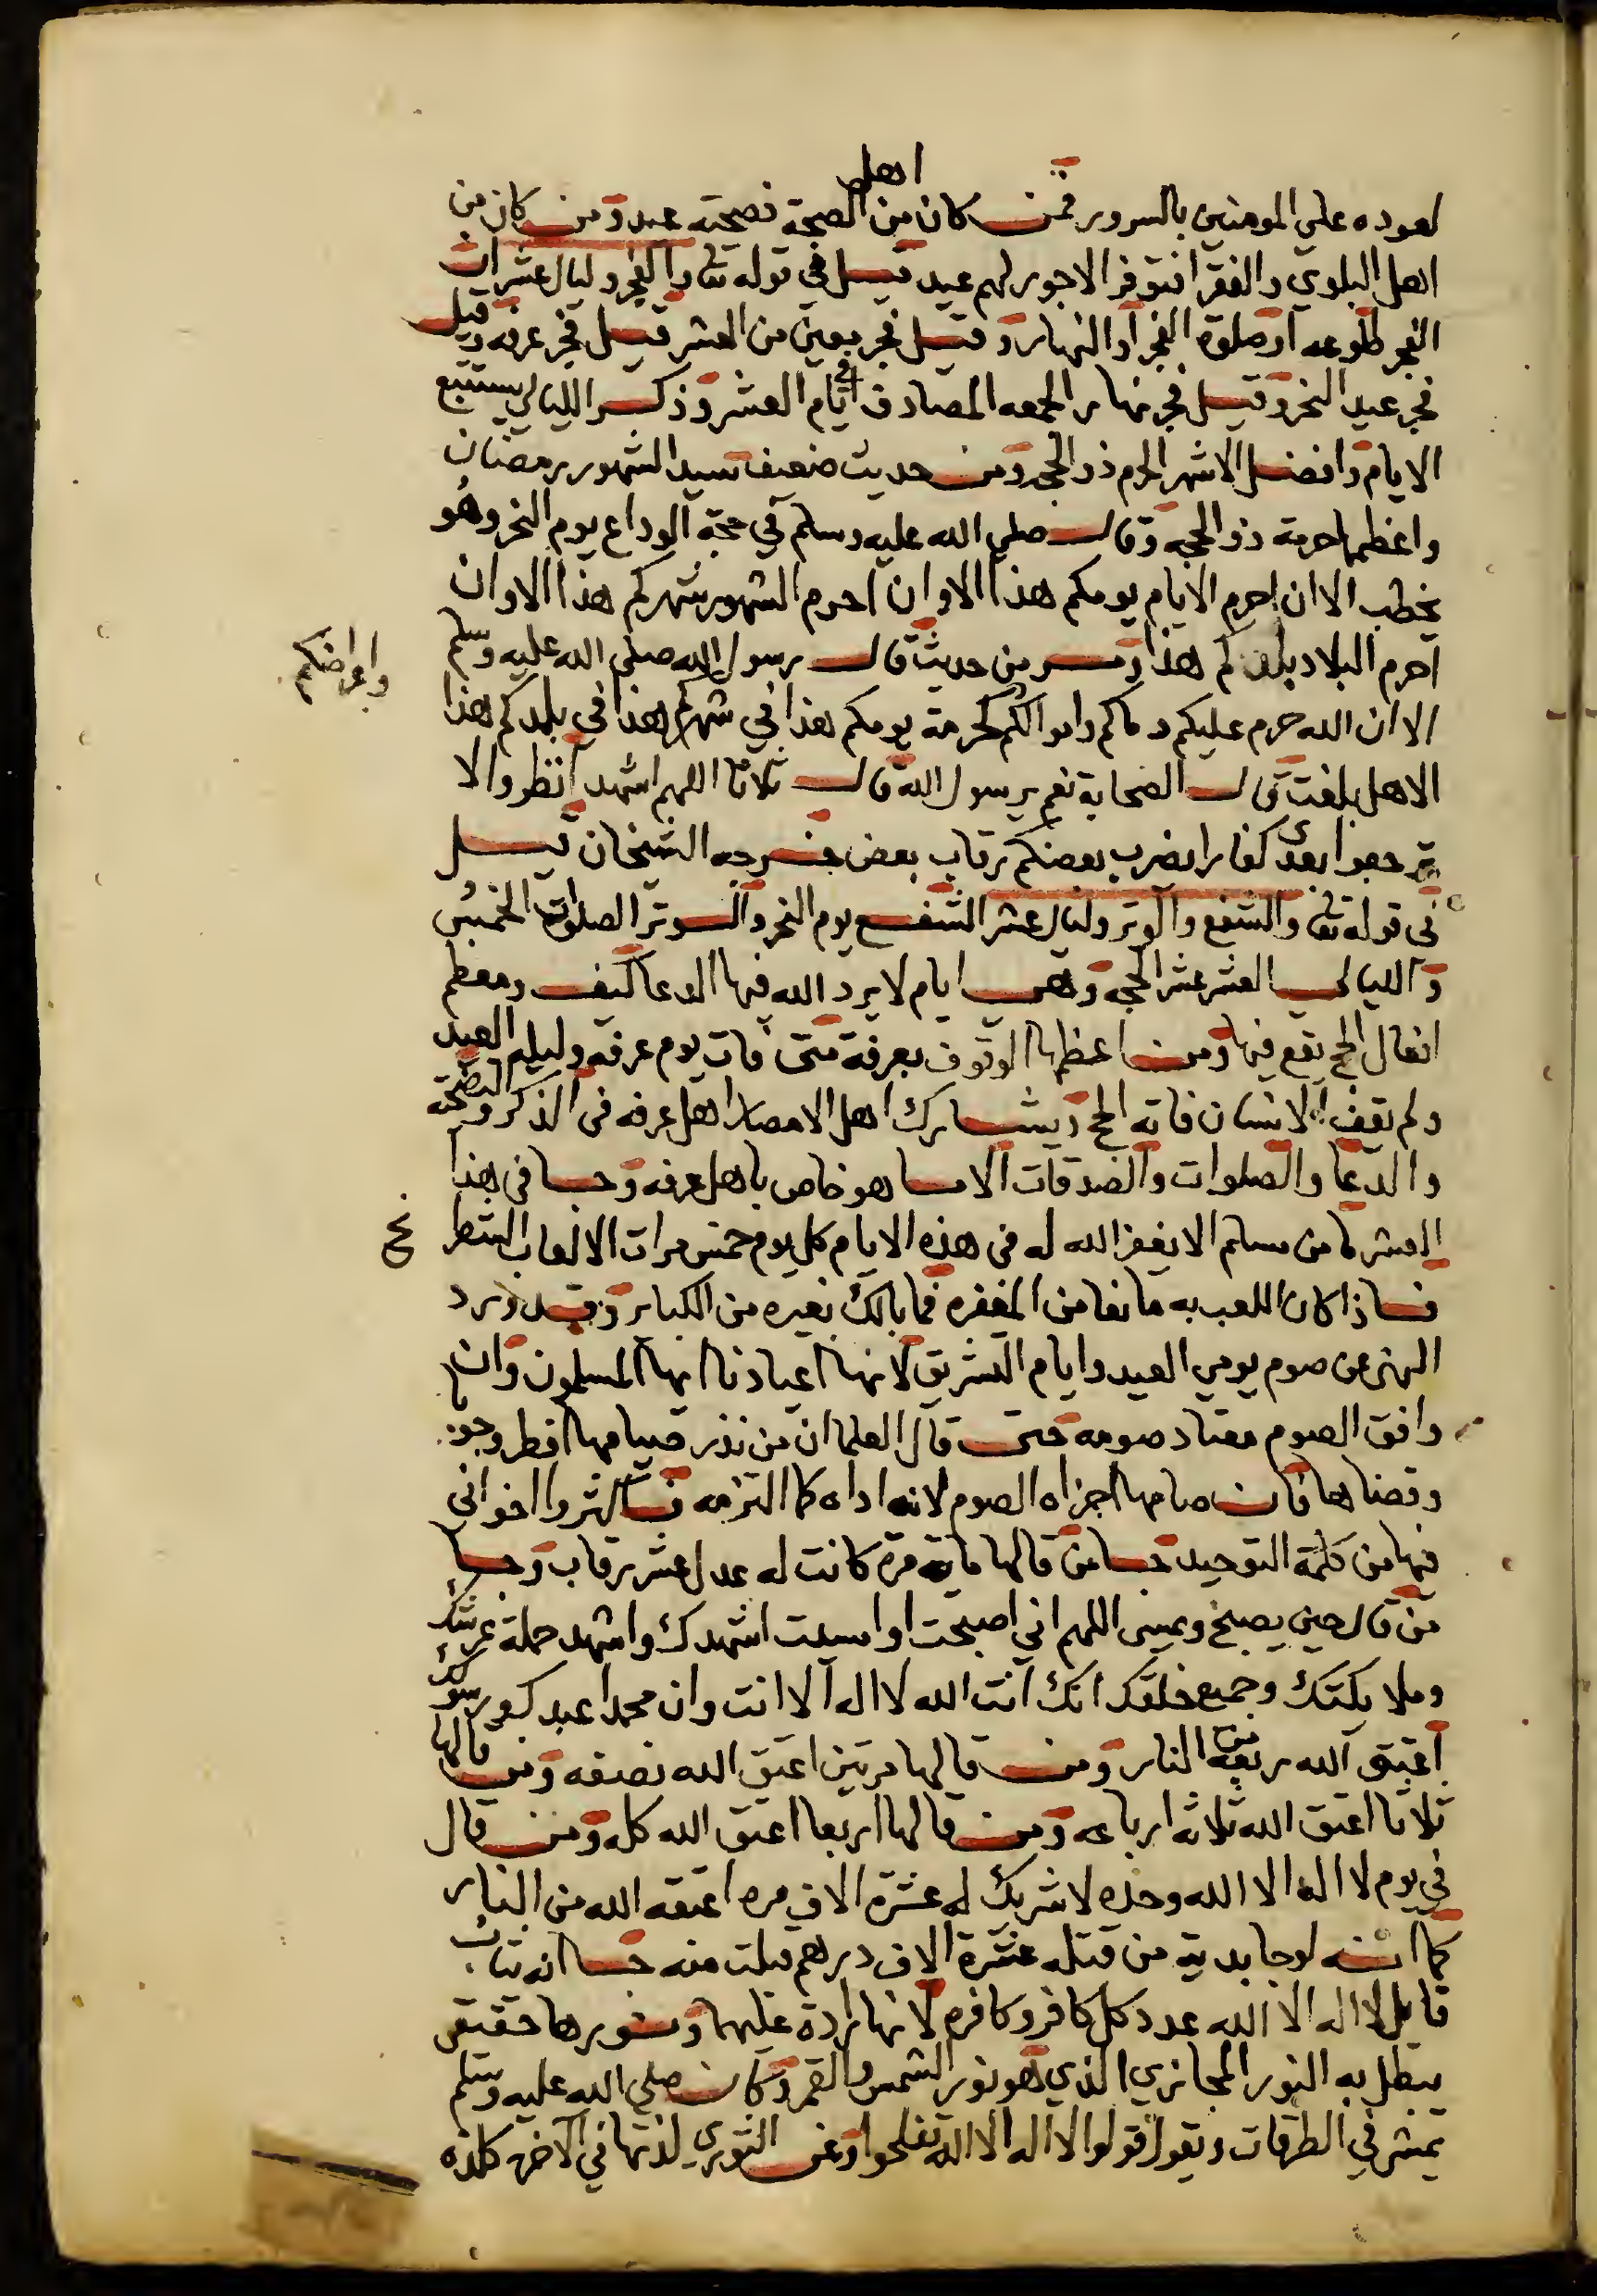 اهل
لعوده علي المومنين بالسرور فمن كان من الصحة فصحته عيد ومن كان من
اهل البلوي والفقر افتوفر الاجور لهم عيد قيل في قوله تعا والفجر وليال عشر ات
الفجر طلوعه او صلوة الفجر او النهار وقيل فجر معين من العشر قيل فجر عرفه وقيل
فجر عيد النحر وقيل فجر نهار الجمعه المصادف في ايام العشر وذكر الليالي يستتبع
الايام وافضل الاشهر الحرم ذو الحجه ومن حديث ضعيف سيد الشهور رمضان
واعظمها حرمة ذو الحجه وقال صلي الله عليه وسلم في حجة الوداع يوم النحر وهو
يخطب الا ان احرم الايام يومكم هذا الا وان احرم الشهور شهركم هذا الا وان
احرم البلاد بلدكم هذا ومر من حديث قال رسول الله صلي الله عليه وسلم
الا ان الله حرم عليكم دماكم واموالكم كحرمة يومكم هذا في شهركم هذا في بلدكم هذا
واعراضكم
الا هل بلغت قال الصحابة نعم يرسول الله قال ثلاثا اللهم اشهد انظروا لا
ترجعوا بعدي كفارا يضرب بعضكم رقاب بعض خرجه الشيخان قيل
في قوله تعا والشفع والوتر وليال عشر الشفع يوم النحر والوتر الصلوات الخمس
والليالي العشر عشر الحجه وهي ايام لا يرد الله فيها الدعا كيف ومعظم
افعال الحج تقع فيها ومن اعظمها الوقوف بعرفة متى فات يوم عرفه وليلة العيد
ولم يقف الانسان فاته الحج ويشارك اهل الامصار اهل عرفه في الذكر والتضحية
والدعا والصلوات والصدقات الا ما هو خاص باهل عرفه وجا في هذا
العشر ما من مسلم الا يغفر الله له في هذه الايام كل يوم خمس مرات الا لعاب الشط
نج
فاذا كان اللعب به مانعا من المغفره فما بالك بغيره من الكباير وقد ورد
النهي عن صوم يومي العيد وايام التشريق لانها اعيادنا ايها المسلمون وان
وافق الصوم معتاد صومه حتى قال العلما ان من نذر صيامها افطر وجوبا
وقضاها فان صامها اجزاه الصوم لانه اداه كما التزمه فاكثروا اخواني
فيها من كلمة التوحيد جا من قالها ماية مره كانت له عدل عشر رقاب وجا
من قال حين يصبح ويمسي اللهم اني اصبحت او امسيت اشهدك واشهد حملة عرشك
وملايكتك وجميع خلقك انك انت الله لا اله الا انت وان محمدا عبدك ورسولك
اعتق الله ربعه من النار ومن قالها مرتين اعتق الله نصفه ومن قالها
ثلاثا اعتق الله ثلاثه ارباعه ومن قالها اربعا اعتق الله كله ومن قال
في يوم لا اله الا الله وحده لا شريك له عشرة الاف مره اعتقه الله من النار
كما انه لو جا بدية من قتله عشرة الاف درهم قبلت منه جا انه يثاب
قايل لا اله الا الله عدد كل كافر وكافره لانها رادة عليهما ونورها حقيقي
يبطل به النور المجازي الذي هو نور الشمس والقمر وكان صلي الله عليه وسلم
يمشي في الطرقات ويقول قولوا لا اله الا الله تفلحوا وعن الثوري لذتها في الاخرة كلذه